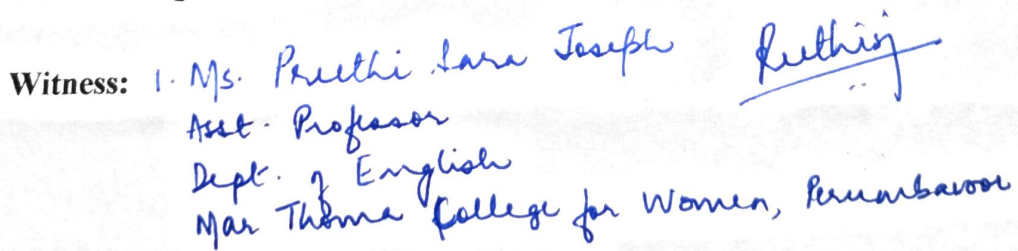 Witness: 1. Ms. Preethi Sara Joseph
Asst. Professor
Dept. of English
Mar Thoma College for Women, Perumbavoor